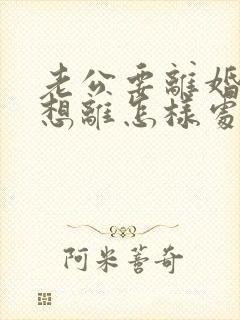 老公要離婚
想離怎樣處
阿米善奇